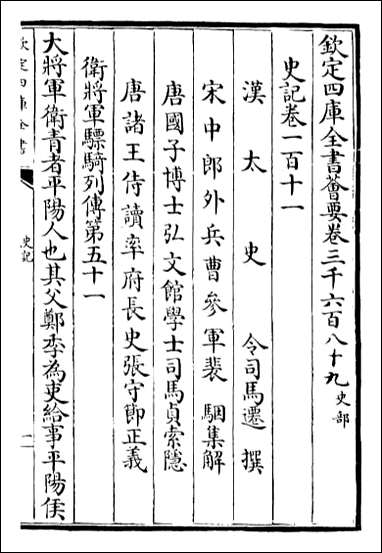 欽定四庫全書薈要卷三千六百八十九 史部
史記卷一百十一
漢太史令司馬遷撰
宋中郎外兵曹參軍裴駰集解
唐國子博士弘文館學士司馬貞索隱
唐諸王侍讀率府長史張守節正義
衛將軍驃騎列傳第五十一
大將軍衛青者平陽人也其父鄭季為吏給事平陽侯
欽定四庫全書
史記